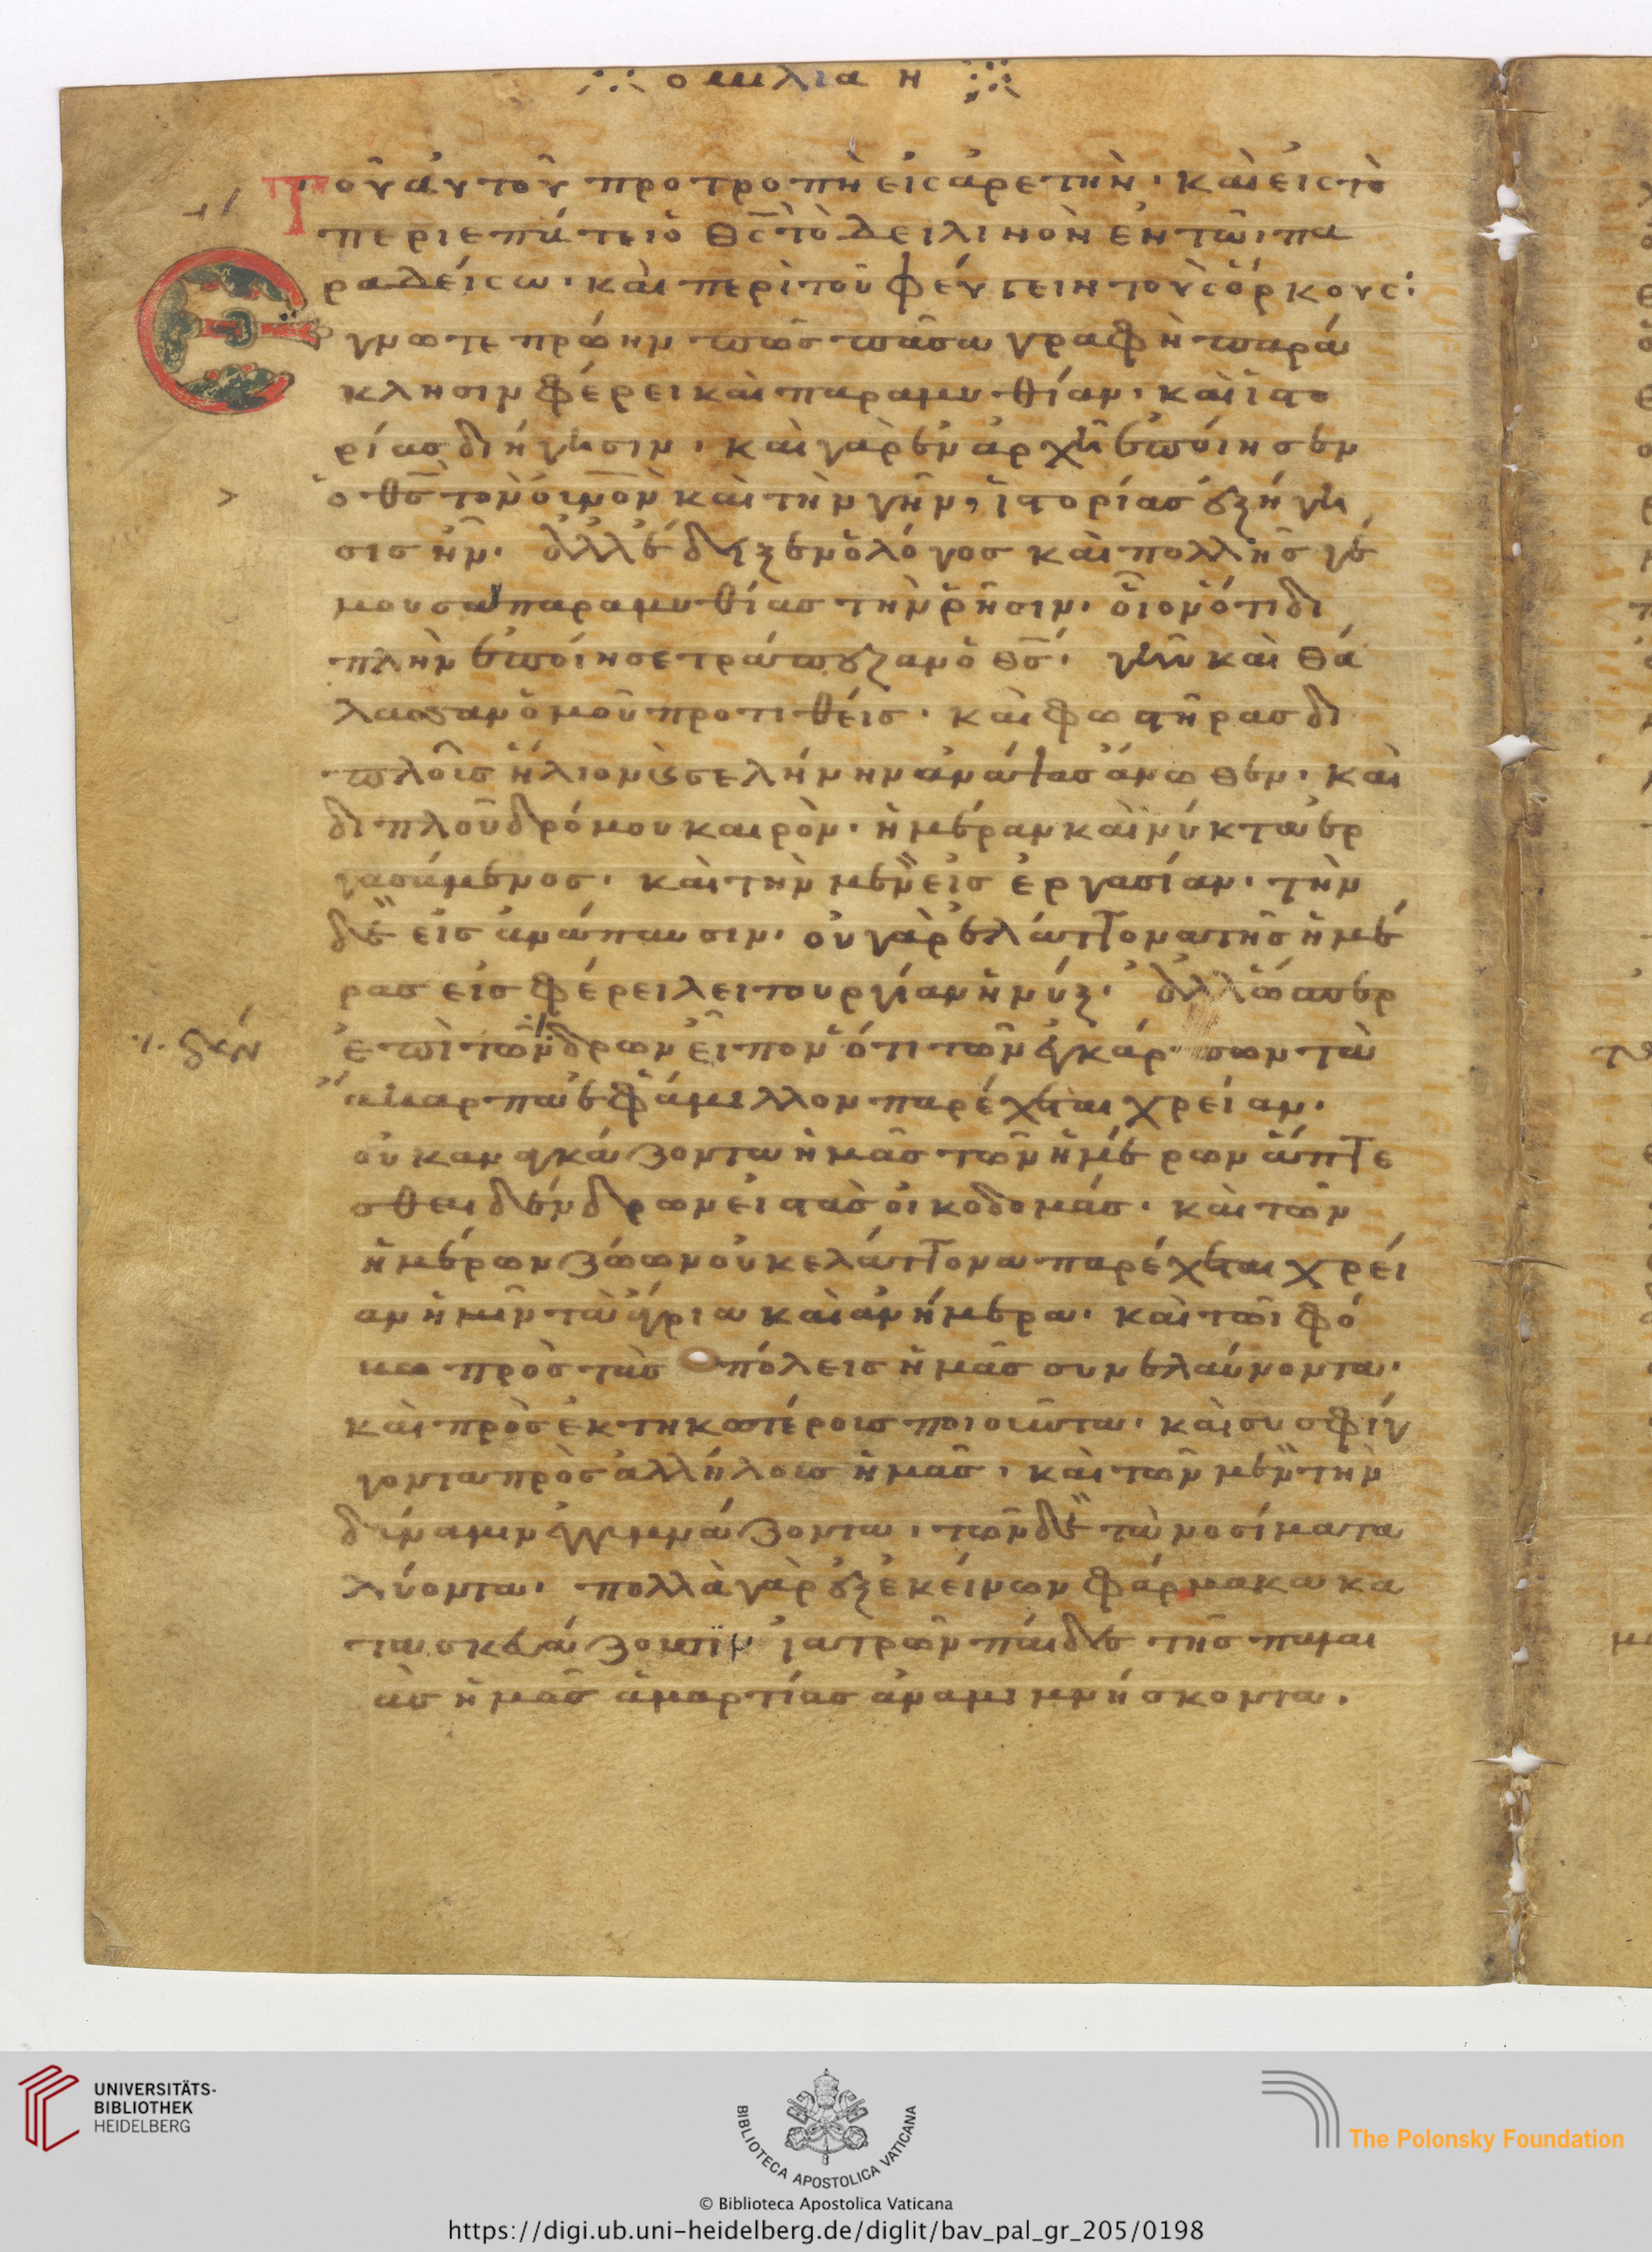 ομιλια η
Τοῦ ἀυτοῦ προτροπὴ εἰς ἀρετὴν· καὶ εἰς τὸ
περιεπάτει ὁ θς τὸ δειλινὸν ἐν τῶι πα
ραδείσω· καὶ περὶ τοῦ φέυγειν τοὺς ὅρκους:
Ἔγνωτε πρώην πῶς πᾶσα γραφὴ παρά
κλησιν φέρει καὶ παραμυθίαν· καὶ ἱστο
ρίας διήγησιν· καὶ γὰρ ἐν ἀρχῆ ἐποίησεν
ὁ θς τὸν οὐνον καὶ τὴν γῆν, ἱστορίας ἐξήγη
σις ἦν· ἀλλ' ἔδειξεν ὁ λόγος καὶ πολλῆς γέ
μουσαν παραμυθίας τὴν ῥῆσιν· οἷον ὅτι δι
πλὴν ἐποίησε τράπεζαν ὁ θς· γῆν καὶ θά
λασσαν ὁμοῦ προτιθείς· καὶ φωστῆρας δι
πλοῖς ἥλιον καὶ σελήνην ἀνάψας ἄνωθεν· καὶ
διπλοῦ δρόμου καιρὸν· ἡμέραν καὶ νύκτα ἐρ
γασάμενος· καὶ τὴν μὲν εἰς ἐργασίαν· τὴν
δὲ εἰς ἀνάπαυσιν· οὐ γὰρ ἐλάττονα τῆς ἡμέ
ρας εἰσφέρει λειτουργίαν ἡ νύξ· ἀλλ' ὥσπερ
δέν
ἐπὶ τῶν δρων εἶπον ὅτι τῶν ἐγκάρπων τὰ
ἄκαρπα ἐφάμιλλον παρέχεται χρείαν·
οὐκ ἀναγκάζοντα ἡμᾶς τῶν ἡμέρων ἅπτε
σθαι δένδρων εἰς τὰς οἰκοδομάς· καὶ τῶν
ἡμέρων ζώων οὐκ ἐλάττονα παρέχεται χρεί
αν ἡμῖν τὰ ἄγρια καὶ ἀνήμερα· καὶ τῶι φό
βω πρὸς τὰς πόλεις ἡμᾶς συνελαύνοντα·
καὶ πρὸσεκτηκωτέροις ποιοῦντα· καὶ συσφίγ
γοντα πρὸς ἀλλήλους ἡμᾶς· καὶ τῶν μὲν τὴν
δύναμιν ἐγγυμνάζοντα· τῶν δὲ τὰ νοσίματα
λύοντα· πολλὰ γὰρ ἐξ ἐκείνων φάρμακα κα
τασκευάζουσιν ἰατρῶν παῖδες τῆς παλαι
ὰς ἡμᾶς ἁμαρτίας ἀναμιμνήσκοντα·
UNIVERSITÄTS-
BIBLIOTHEK
HEIDELBERG
BIBLIOTECA APOSTOLICA VATICANA
The Polonsky Foundation
© Biblioteca Apostolica Vaticana
https://digi.ub.uni-heidelberg.de/diglit/bav_pal_gr_205/0198